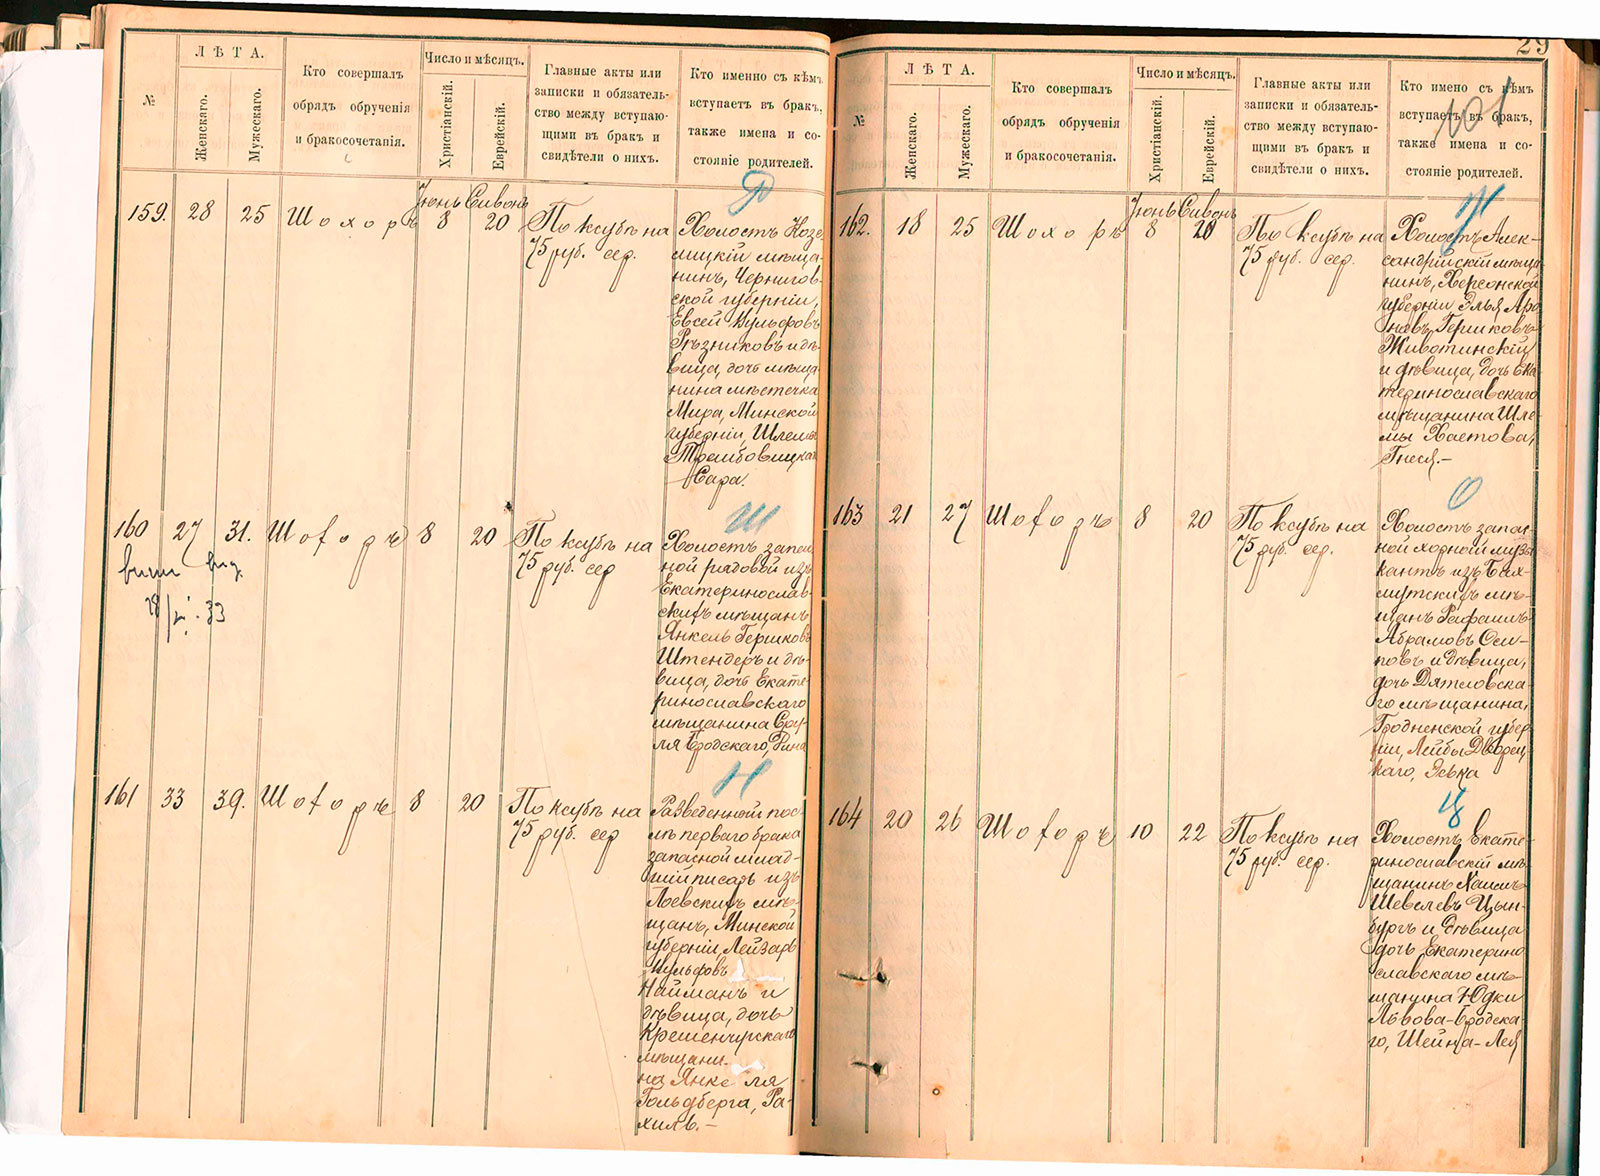 29
101
№
ЛѢТА.
Женскаго.
Мужескаго.
Кто совершалъ
обрядъ обрученія
и бракосочетанія.
Число и мѣсяцъ.
Христіанскій.
Еврейскій.
Главные акты или
записки и обязатель-
ство между вступаю-
щими въ бракъ и
свидѣтели о нихъ.
Кто именно съ кѣмъ
вступаетъ въ бракъ,
также имена и со-
стояніе родителей.
Р
159.
28
25
Шохоръ
Іюнь
8
Сивонъ
20
По ксубѣ на
75 руб. сер.
Холостъ Козе-
лицкій мѣща-
нинъ, Чернигов-
ской губерніи,
Евсей Вульфовъ
Рѣзниковъ и дѣ-
вица, дочь мѣща-
нина мѣстечка
Мира, Минской
губерніи, Шлемы
Трейбовицкаго
Сара.
Ш
160
27
31.
Шоfоръ
8
20
По ксубѣ на
75 руб. сер
28/VI.33
Холостъ запас
ной рядовой изъ
Екатеринослав-
скихъ мѣщанъ
Янкель Гершковъ
Штендеръ и дѣ-
вица, дочь Екате-
ринославскаго
мѣщанина Сру-
ля Бродскаго, Рина
Н
161
33
39.
Шоfоръ
8
20
По ксубѣ на
75 руб. сер
Разведенной пос-
лѣ перваго брака
запасной млад-
шій писарь изъ
Лоевскихъ мѣ-
щанъ, Минской
губерніи, Лейзаръ
Вульфовъ
Найманъ и
дѣвица, дочь
Кременчугскаго
мѣщани-
на Янке ля
Гольдберга, Ра-
хиль.—
№
ЛѢТА.
Женскаго.
Мужескаго.
Кто совершалъ
обрядъ обрученія
и бракосочетанія.
Число и мѣсяцъ.
Христіанскій.
Еврейскій.
Главные акты или
записки и обязатель-
ство между вступаю-
щими въ бракъ и
свидѣтели о нихъ.
Кто имено съ кѣмъ
вступаетъ въ бракъ,
также имена и со-
стояніе родителей.
Ж
162.
18
25
Шохоръ
Іюнь
8
Сивонъ
20
По ксубѣ на
75 руб. сер.
Холостъ Алек-
сандрійскій мѣща
нинъ, Херсонской
губерніи Элья Аро
новъ Гершковъ
Животинскій
и дѣвица, дочь Ека-
теринославскаго
мѣщанина Шле-
мы Хаетова,
Гнеся.—
О
163
21
27
Шоfоръ
8
20
По ксубѣ на
75 руб. сер.
Холостъ запас-
ной ходной музы
кантъ изъ Бах-
мутскихъ мѣ-
щанъ Рафаилъ
Абрамовъ Оси-
повъ и дѣвица,
дочь Дятловска-
го мѣщанина,
Гродненской губер-
ніи, Лейбы Дворец-
каго, Эська
Ц
164
20
26
Шоfоръ
10
22
По ксубѣ на
75 руб. сер.
Холостъ Екате-
ринославскій мѣ-
щанинъ Хаимъ
Шевелевъ Цын-
бургъ и дѣвица
дочь Екатерино
славскаго мѣ-
щанина Юдки
Львова-Бродска-
го, Шейна-Лея